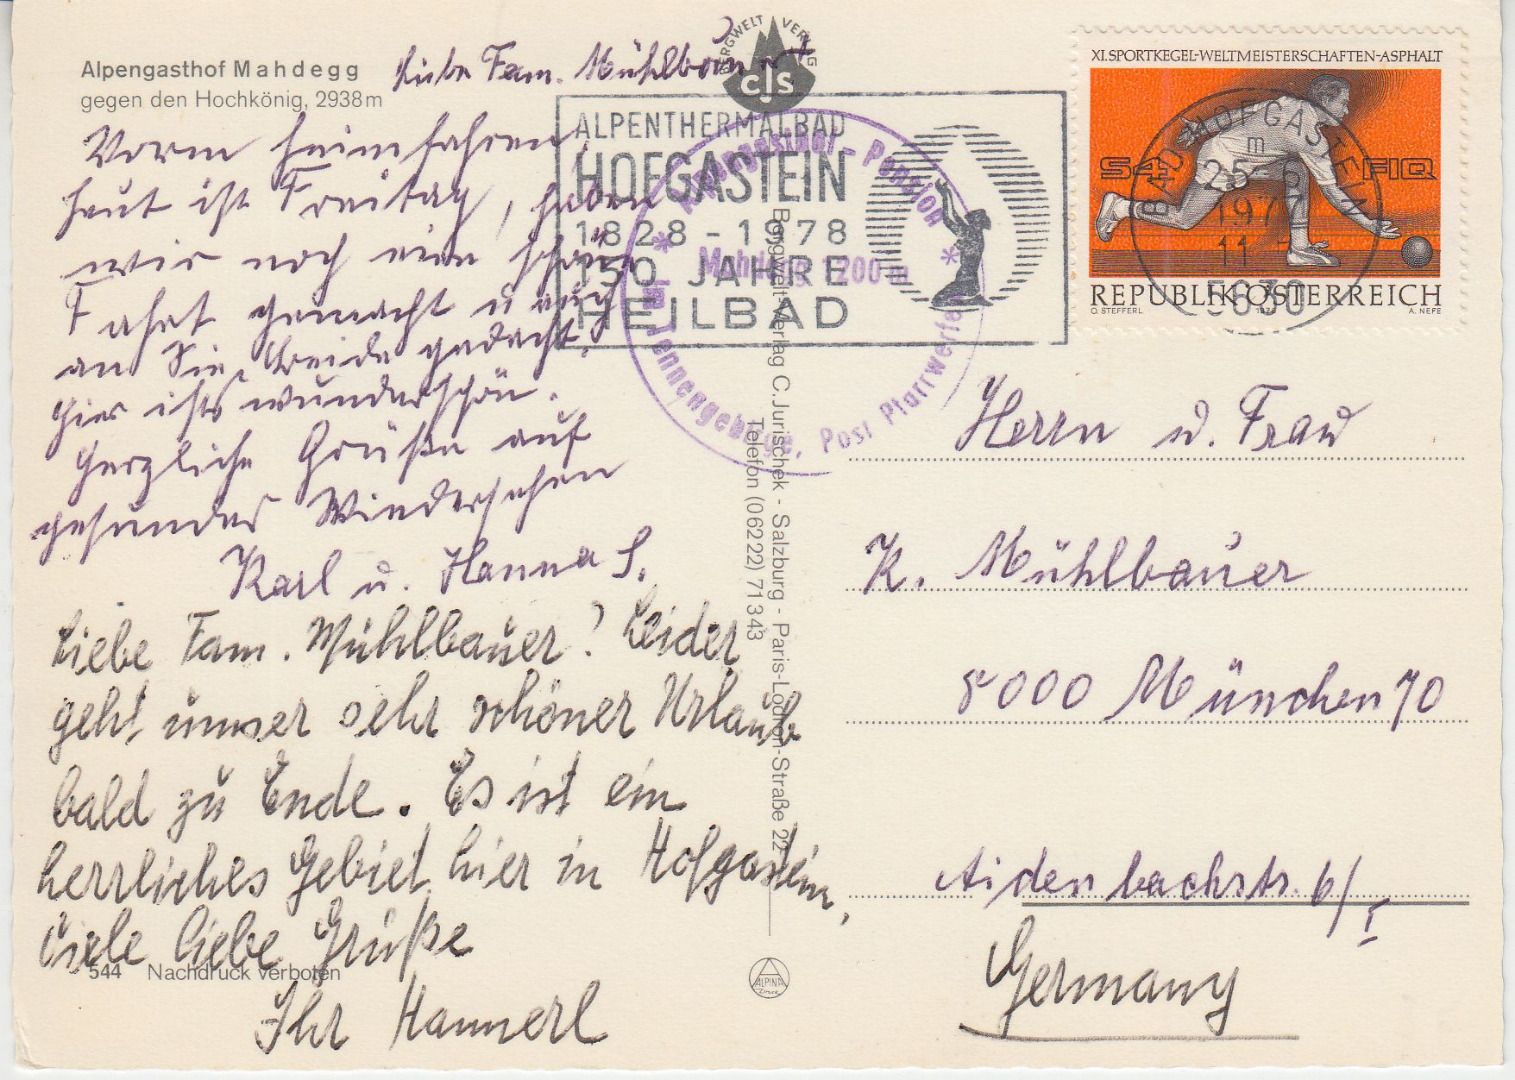 Alpengasthof Mahdegg
gegen den Hochkönig, 2938m
Liebe Fam. Mühlbauer!
Vorm heimfahren,
heut ist Freitag, haben
wir noch eine schöne
Fahrt gemacht u. auch
an Sie beide gedacht.
hier ists wunderschön.
Herzliche Grüße auf
gesundes Wiedersehen
Karl u. Hanna S.
Liebe Fam. Mühlbauer! Leider
geht unser sehr schöner Urlaub
bald zu Ende. Es ist ein
herrliches Gebiet hier in Hofgastein,
Viele liebe Grüße
Ihr Hannerl
544 Nachdruck verboten
BERGWELT VERLAG
CJS
ALPENTHERMALBAD
HOFGASTEIN
1828 - 1978
150 JAHRE
HEILBAD
Alpengasthof - Pension
* Mahdegg 1200 m *
im Tennengebirge, Post Pfarrwerfen
Bergwelt-Verlag C. Jurischek - Salzburg - Paris-Lodron-Straße 22
Telefon (06222) 71343
ALPINA
Druck
XI. SPORTKEGEL-WELTMEISTERSCHAFTEN-ASPHALT
S4 FIQ
REPUBLIK ÖSTERREICH
O. STEFFERL
A. NEFE
BAD HOFGASTEIN
m
1977
11
5630
Herrn u. Frau
K. Mühlbauer
8000 München 70
Aidenbachstr. 6/I
Germany